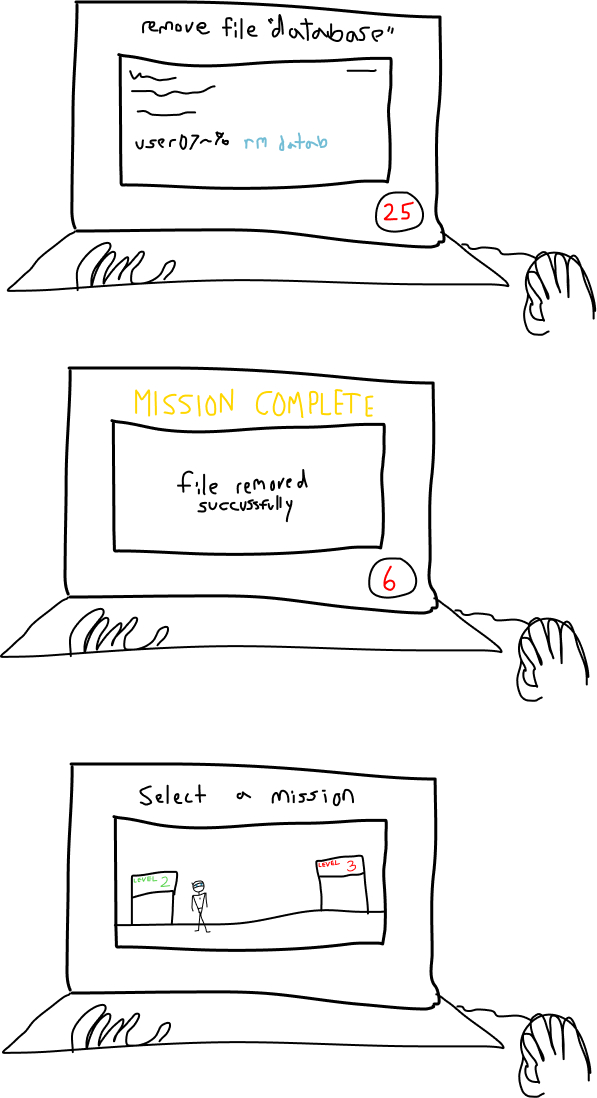 remove file "database"
user07~% rm datab
25
MISSION COMPLETE
file removed
succussfully
6
Select a mission
LEVEL 2
LEVEL 3